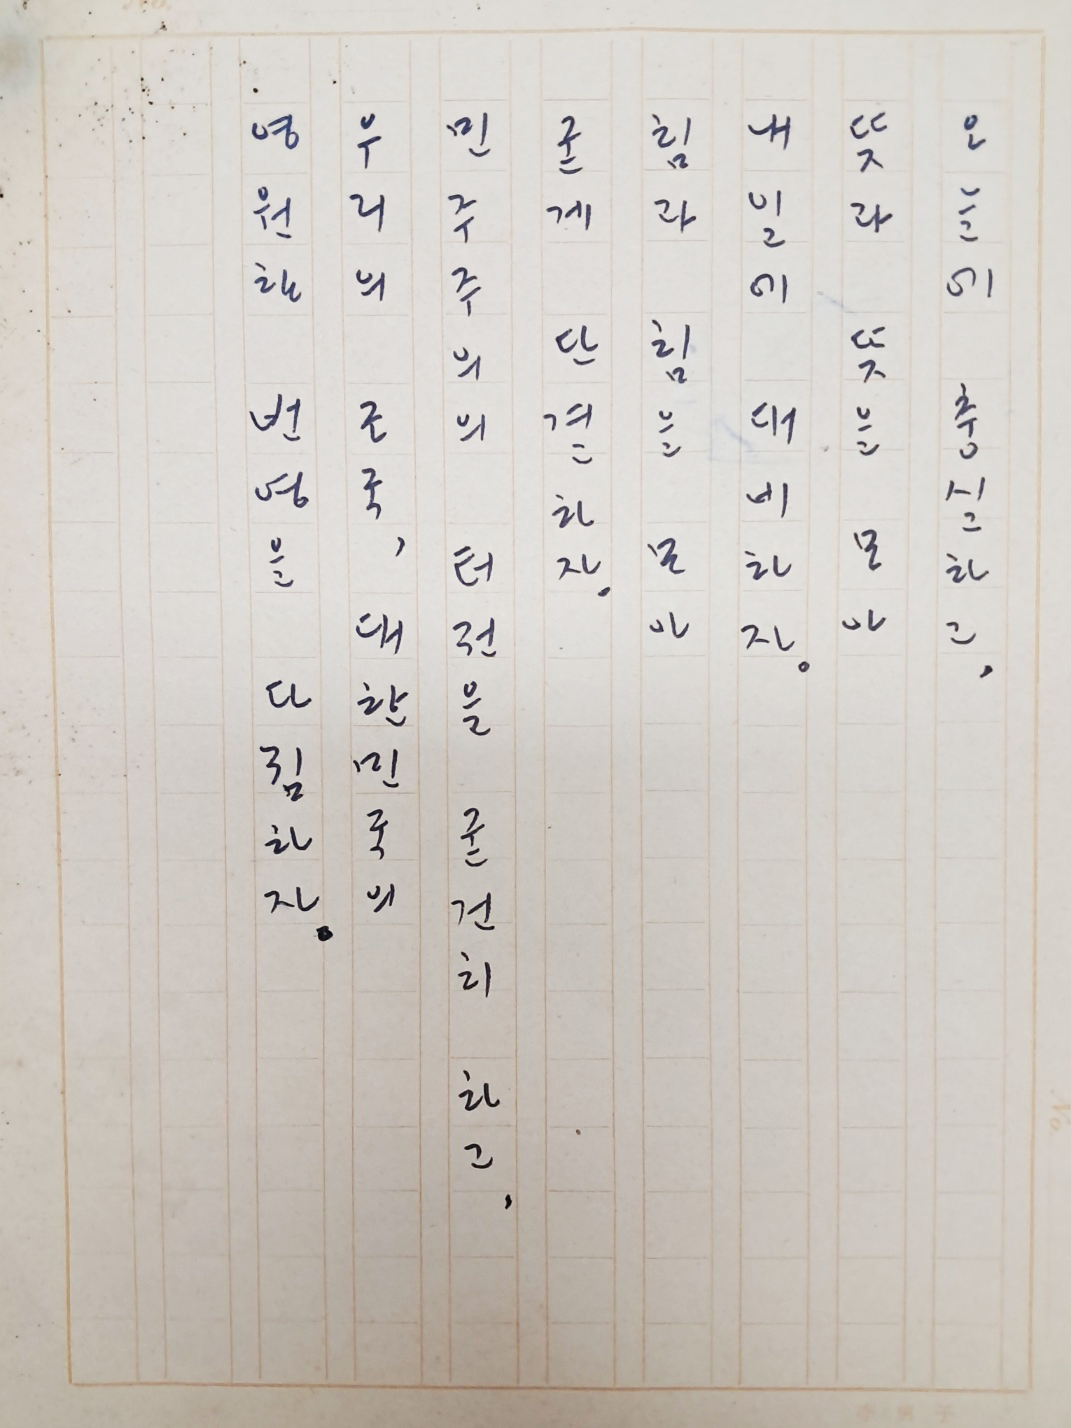 오늘에 충실하고,
뜻과 뜻을 모아
내일에 대비하자.
힘과 힘을 모아
굳게 단결하자.
민주주의의 터전을 굳건히 하고,
우리의 조국, 대한민국의
영원한 번영을 다짐하자.